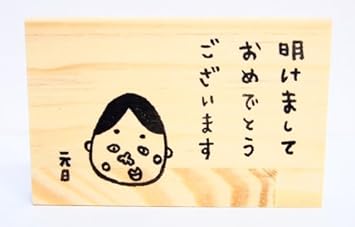 明けまして
おめでとう
ございます
元日